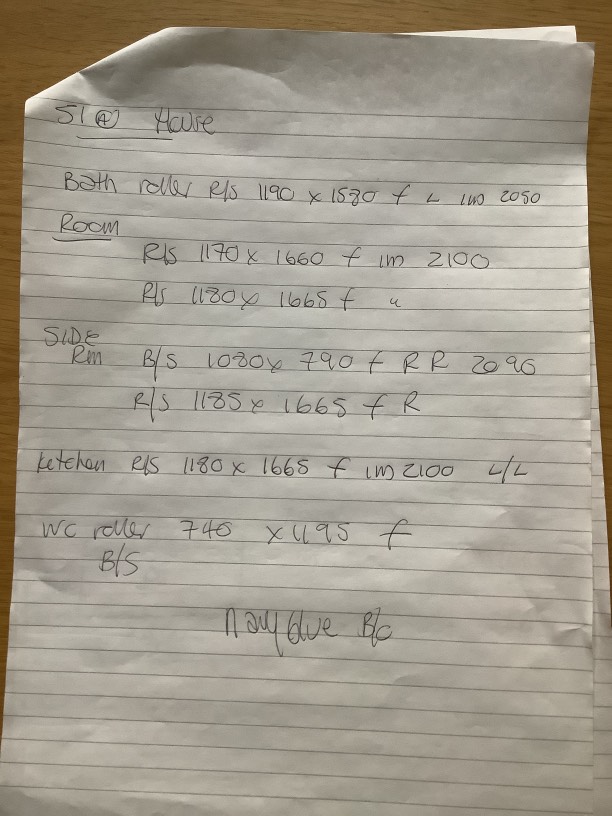 51 (A) House
Bath roller R/s 1190 x 1580 f L im 2050
Room
R/s 1170 x 1660 f im 2100
R/s 1180 x 1665 f "
SIDE
Rm B/S 1080 x 790 f R R 2090
R/s 1185 x 1665 f R
Ketchen R/S 1180 x 1665 f im 2100 L/L
WC roller 740 x 1195 f
B/S
Navy blue B/c